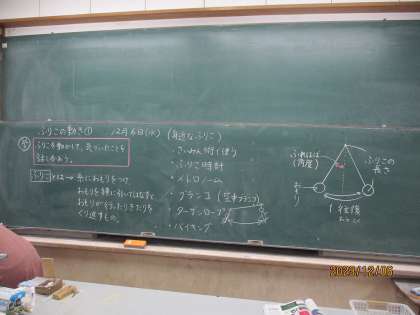 ふりこの動き① 12月6日(水)
ふりこを動かして、気づいたことを
話し合おう。
ふりことは→糸におもりをつけ
おもりを横に引いてはなすと
おもりが行ったりきたりを
くり返すもの。
(身近なふりこ)
・さいみん術で使う
・ふりこ時計
・メトロノーム
・ブランコ(空中ブランコ)
・ターザンロープ
・バイキング
ふれはば
(角度)
ふりこの
長さ
おもり
1往復
おうふく
2023/12/06